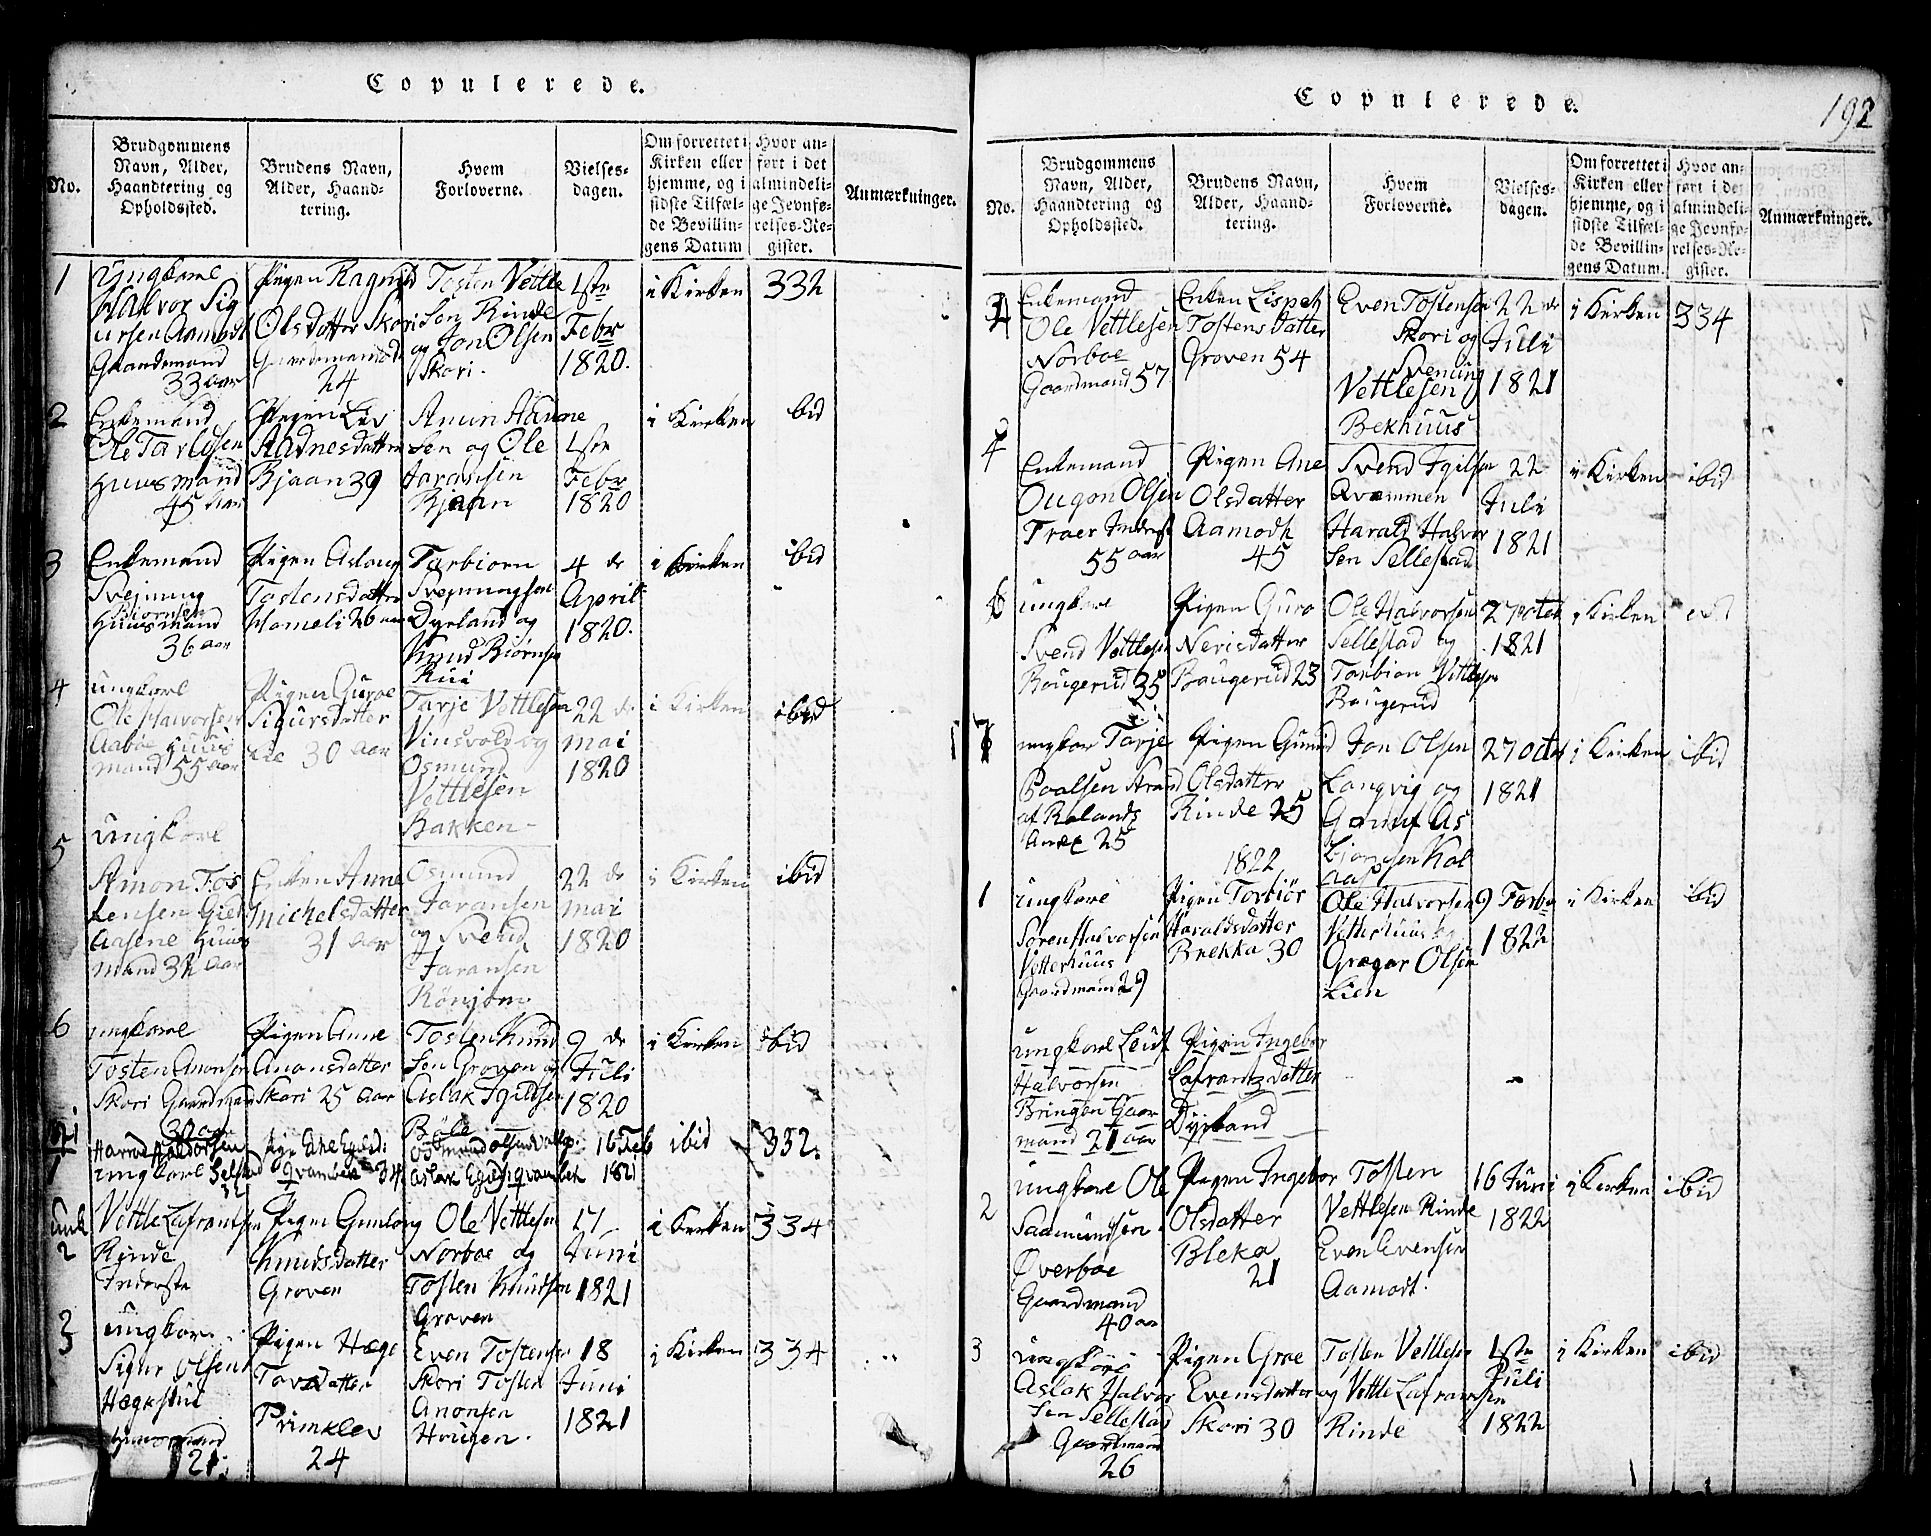 Copulerede.
No.
Brudgommens
Navn, Alder,
Haandtering og
Opholdssted.
Brudens Navn,
Alder, Haand-
tering.
Hvem
Forloverne.
Vielses-
dagen.
Om forrettet i
Kirken eller
hjemme, og i
sidste Tilfæl-
de Bevillin-
gens Datum
Hvor an-
ført i det
almindeli-
ge Jevnfø-
relses-Re-
gister.
Anmærkninger.
1
Ungkarl
Halvor Sig
ursen Aamodt
Gaardmand
33 aar
Pigen Ragnild
Olsdatter Skori
24
Tosten Vettle
Sen Rinde
og Jon Olsen
Skori.
1ste
Febr
1820.
i Kirken
332
2
Enkemand
Ole Tarldsen
Huusmand
45 Aar
Pigen Liv
Aadnesdatter
Bjaan 39
Sen og Ole
Jaransen
Bjaan
1ste
Febr
1820
i Kirken
ibid
3
Enkemand
Svejnung
Biørnsen
Huusmand
36 aar
Pigen Aslaug
Tostensdatter
Homeli 26 aar
Tarbiorn
Svejnungsen
Dyrland og
Knud Biørnsen
Rui
4 de
April
1820.
i Kirken
ibid
4
ungkarl
Ole Halvorsen
Aabøe Huus
mand 55 aar
Pigen Guroe
Sigursdatter
Lie 30 aar
Tarje Vettlesen
Vinsvold og
Osmund
Vettlesen
Bakken
22 de
mai
1820
i Kirken
ibid
5
ungkarl
Amon Tos
tensen
Aasene Huus
mand 32 aar
Enken Anne
Michelsdatter
31 aar
Osmund
Jaransen
og Svend
Jaransen
Rønjom
22 de
mai
1820
i Kirken
ibid
6
ungkarl
Tosten Anonsen
Skori Gaardmand
30 aar
Pigen Anne
Anonsdatter
Skori 25 Aar
Tosten Knud
Sen Groven og
Aslak Igildsen
9 de
Juli
1820
i Kirken
ibid
1
ungkarl
Pige
Qvambek 34
Aslak
16 Feb
1821
ibid
332.
2
Vettle Lafrantsen
Rinde
Inderste
Pigen Gunlaug
Knudsdatter
Groven
Ole Vettlesen
Norboe og
Tosten Knudsen
Groven
17
Juni
1821
i Kirken
334
3
ungkarl
Sigur Olsen
Hægestuel
Huusmand
21
Pigen Hæge
Tovsdatter
Primklev
24
Even Tostensen
Skori Tosten
Anonsen
Hougen.
18
Juni
1821
i Kirken
334
Copulerede.
192
No.
Brudgommens
Navn, Alder,
Haandtering og
Opholdssted.
Brudens Navn,
Alder, Haand-
tering.
Hvem
Forloverne.
Vielses-
dagen.
Om forrettet i
Kirken eller
hjemme, og i
sidste Tilfæl-
de Bevillin-
gens Datum.
Hvor an-
ført i det
almindeli-
ge Jevnfø-
relses-Re-
gister.
Anmærkninger.
4
Enkemand
Ole Vettlesen
Norboe
Gaardmand 57
Enken Lispeth
Tostens Datter
Groven 54
Even Tostensen
Skori og
Svenung
Vettlesen
Bekhuus
22 de
Juli
1821
i Kirken
334
Enkemand
Ougon Olsen
Traer Inderst
55 aar
Pigen Ane
Olsdatter
Aamodt
45
Svend Igilsen
Qvammen
Harald Halvor
Sen Sellestad
22
Juli
1821
i Kirken
ibid
6
ungkarl
Svend Vettlesen
Baugerud 35
Pigen Guro
Nerisdatter
Baugerud 23
Ole Halvorsen
Sellestad og
Tarbion Vettlesen
Baugerud
27 octob
1821
i Kirken
7
ungkar Tarje
Boalsen Strand
af Rolands
Anex 25
Pigen Gunild
Olsdatter
Rinde 25
Jon Olsen
Langvig og
27 octob
1821
i Kirken
ibid
1822
1
ungkarl
Søren Halvorsen
Vetterhuus
Gaardmand 29
Pigen Torbiør
Haraldsdatter
Brekka 30
Ole Halvorsen
Vetterhuus og
Gregar Olsen
Lien
9 Febr
1822
i Kirken
ibid
ungkarl Leidf
Halvorsen
Bringen Gaar
mand 21 aar
Pigen Ingebor
Lafrantzdatter
Dyrland
2
ungkarl Ole
Saamundsen
Øverboe
Gaardmand
40 aar
Pigen Ingebor
Olsdatter
Bleka
21
Tosten
Vettlesen Rinde
Even Evensen
Aamodt.
16 Juni
1822
i Kirken
ibid
3
ungkarl
Aslak Halvor
sen Sellestad
Gaardmand
26
Pigen Groe
Evensdatter
Skori 30
Tosten Vettlesen
og Vettle Lafrantsen
Rinde
1ste
Juli
1822
i Kirken
ibid